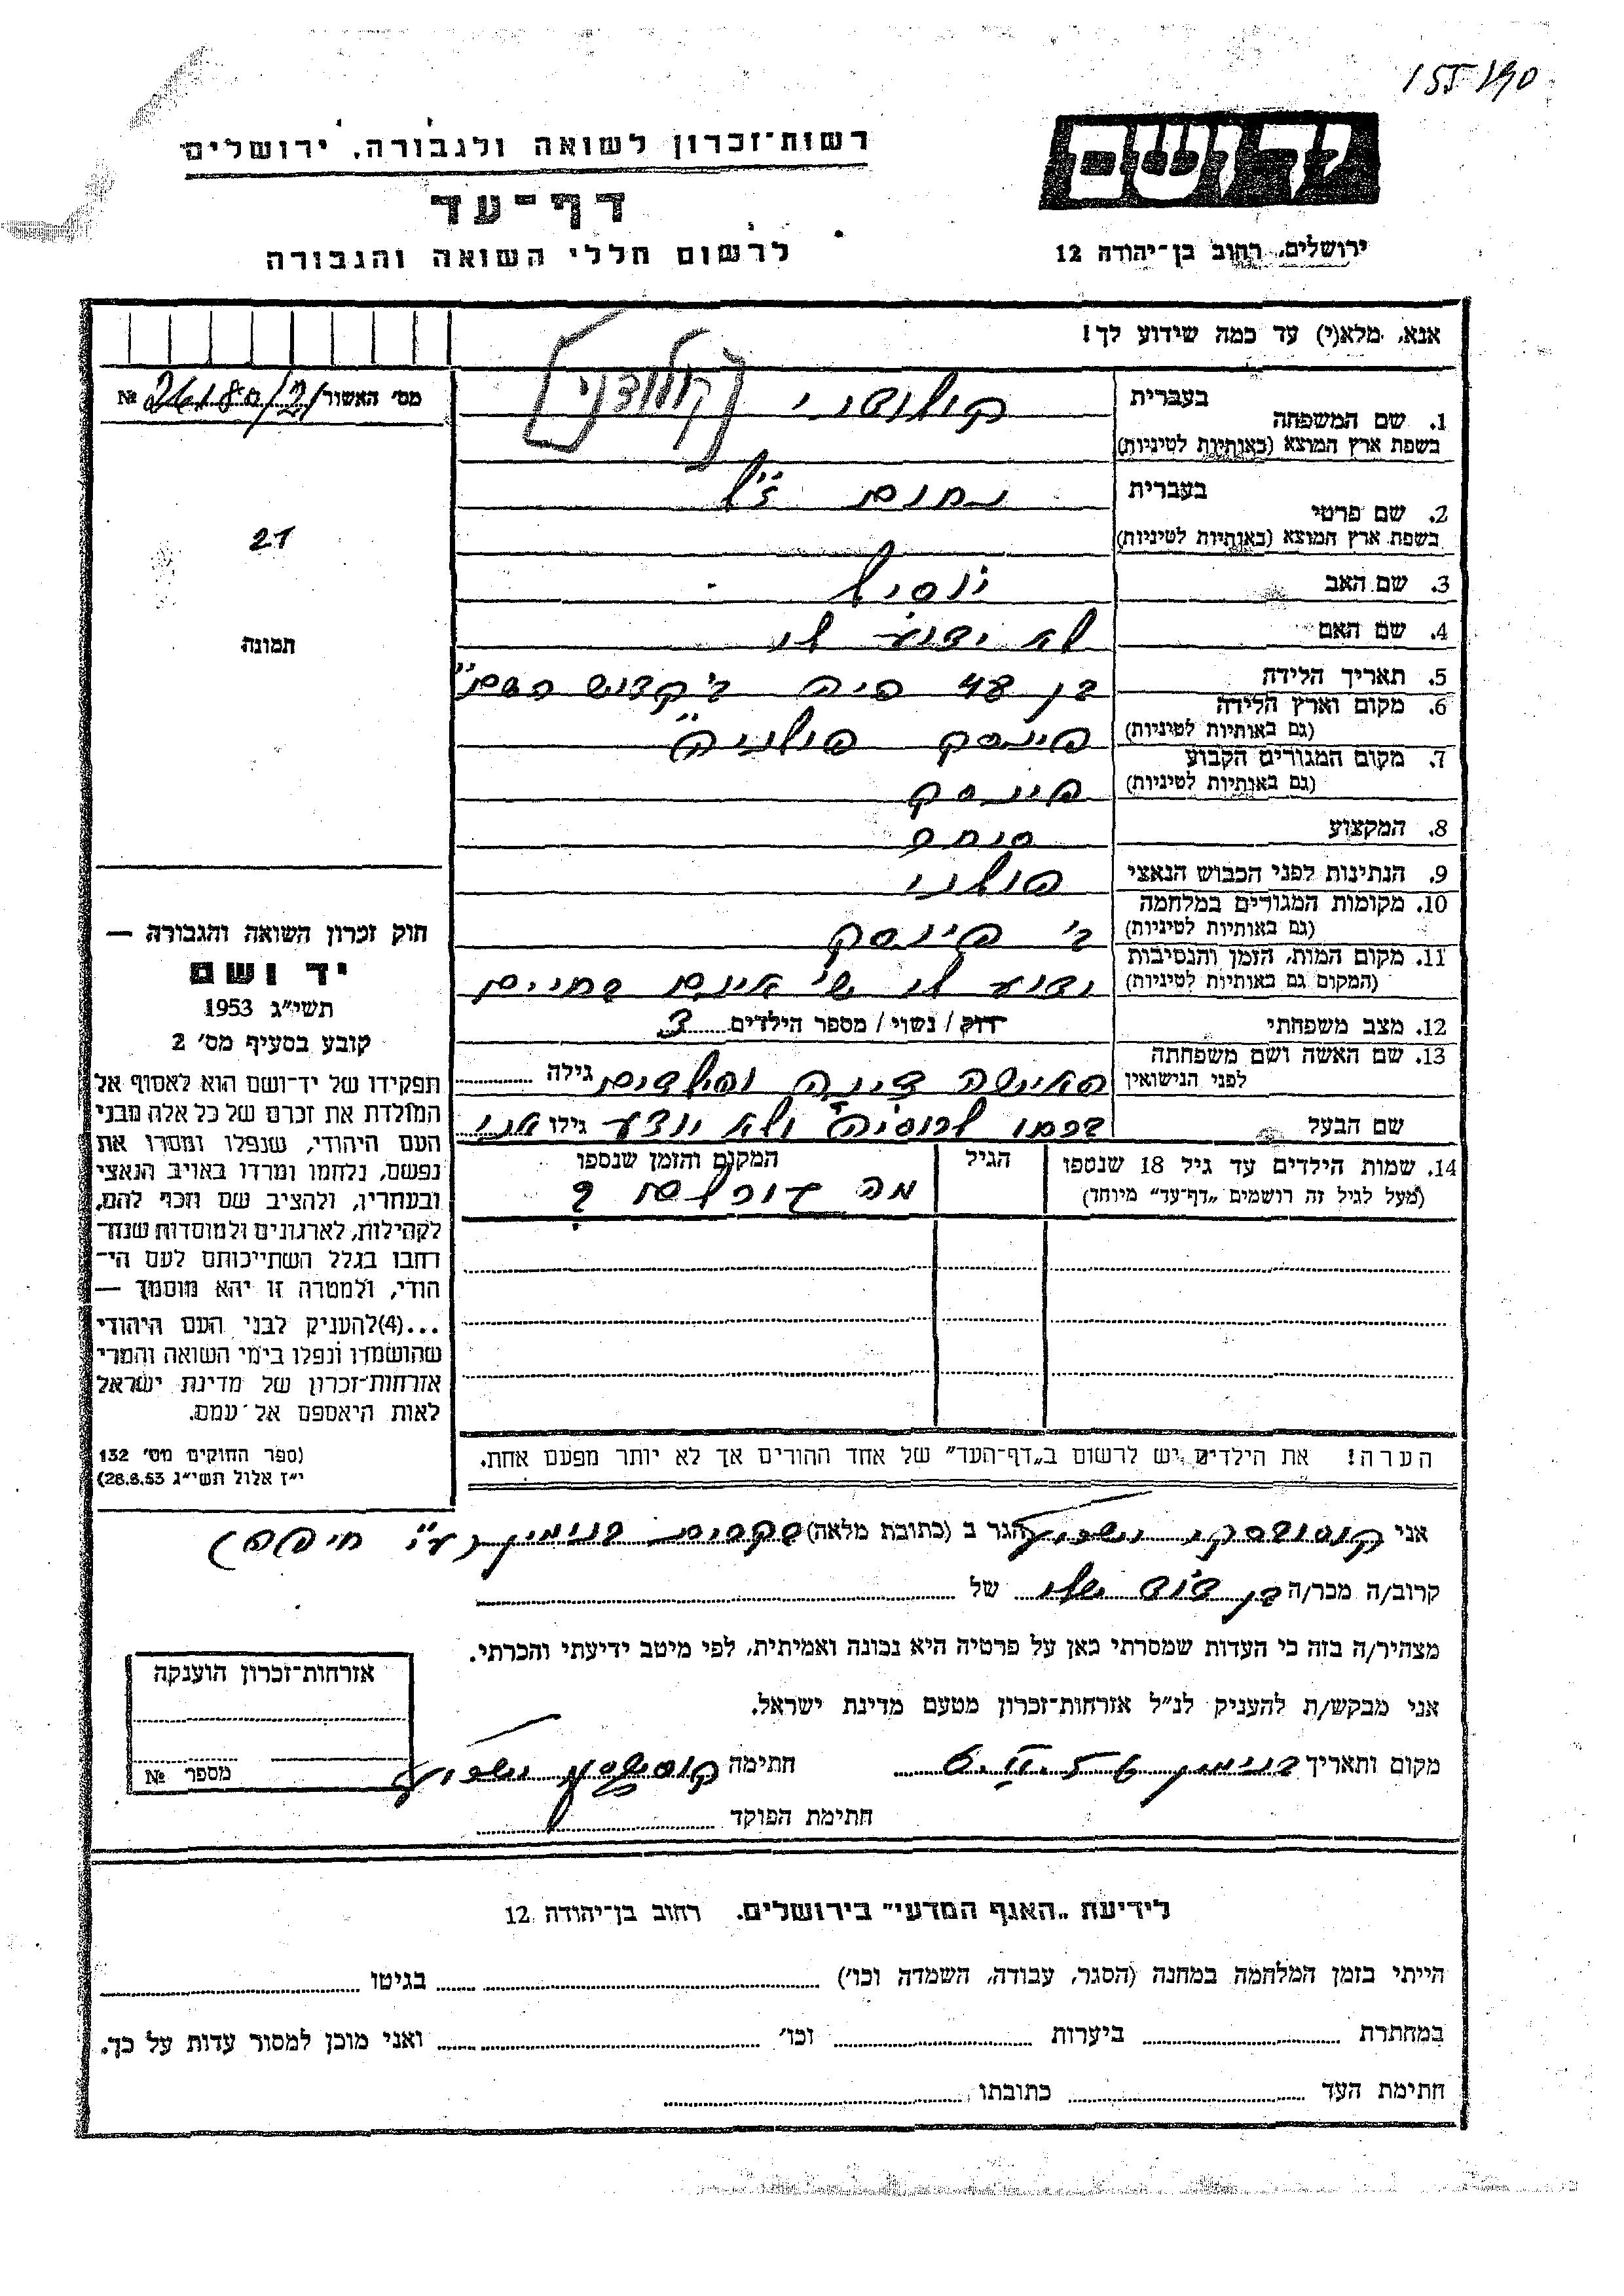 155/90
יד ושם
רשות־זכרון לשואה ולגבורה, ירושלים
דף־עד
ירושלים, רחוב בן־יהודה 12
לרשום חללי השואה והגבורה
אנא, מלא(י) עד כמה שידוע לך!
מס' האשור № 26180/21
21
תמונה
1. שם המשפחה
בעברית קולודני [קולודני]
בשפת ארץ המוצא (באותיות לטיניות)
2. שם פרטי
בעברית נחום ז"ל
בשפת ארץ המוצא (באותיות לטיניות)
3. שם האב יוסיל
4. שם האם לא ידוע לי
5. תאריך הלידה בן 48 היה ב'קדוש השם"
6. מקום וארץ הלידה
(גם באותיות לטיניות) פינסק פולניה"
7. מקום המגורים הקבוע
(גם באותיות לטיניות) פינסק
8. המקצוע סוחר
9. הנתינות לפני הכבוש הנאצי פולני
10. מקומות המגורים במלחמה
(גם באותיות לטיניות) ב' פינסק
11. מקום המות, הזמן והנסיבות
(המקום גם באותיות לטיניות) ידוע לי שי אינם בחיים
12. מצב משפחתי רווק / נשוי / מספר הילדים 3
13. שם האשה ושם משפחתה
לפני הנישואין האישה דינה והילדים גילה
שם הבעל ברחו לרוסיה ולא יודע גילו אני
14. שמות הילדים עד גיל 18 שנספו
(מעל לגיל זה רושמים „דף־עד" מיוחד)
הגיל
המקום והזמן שנספו
מה גורלם ?
הערה! את הילדים יש לרשום ב„דף־העד" של אחד ההורים אך לא יותר מפעם אחת.
חוק זכרון השואה והגבורה —
יד ושם
תשי"ג 1953
קובע בסעיף מס' 2
תפקידו של יד־ושם הוא לאסוף אל
המולדת את זכרם של כל אלה מבני
העם היהודי, שנפלו ומסרו את
נפשם, נלחמו ומרדו באויב הנאצי
ובעוזריו, ולהציב שם וזכר להם,
לקהילות, לארגונים ולמוסדות שנח־
רבו בגלל השתייכותם לעם הי־
הודי, ולמטרה זו יהא מוסמך —
...(4)להעניק לבני העם היהודי
שהושמדו ונפלו בימי השואה והמרי
אזרחות־זכרון של מדינת ישראל
לאות היאספם אל עמם.
(ספר החוקים מס' 132
י"ז אלול תשי"ג 28.8.53)
אני הגר ב (כתובת מלאה) בנימין (ע"י חיפה)
קרוב/ה מכר/ה בן דוד שלי של
מצהיר/ה בזה כי העדות שמסרתי כאן על פרטיה היא נכונה ואמיתית, לפי מיטב ידיעתי והכרתי.
אני מבקש/ת להעניק לנ"ל אזרחות־זכרון מטעם מדינת ישראל.
מקום ותאריך בנימין חתימה
חתימת הפוקד
אזרחות־זכרון הוענקה
מספר №
לידיעת „האגף המדעי" בירושלים. רחוב בן־יהודה 12
הייתי בזמן המלחמה במחנה (הסגר, עבודה, השמדה וכו') בגיטו
במחתרת ביערות וכו' ואני מוכן למסור עדות על כך.
חתימת העד כתובתו